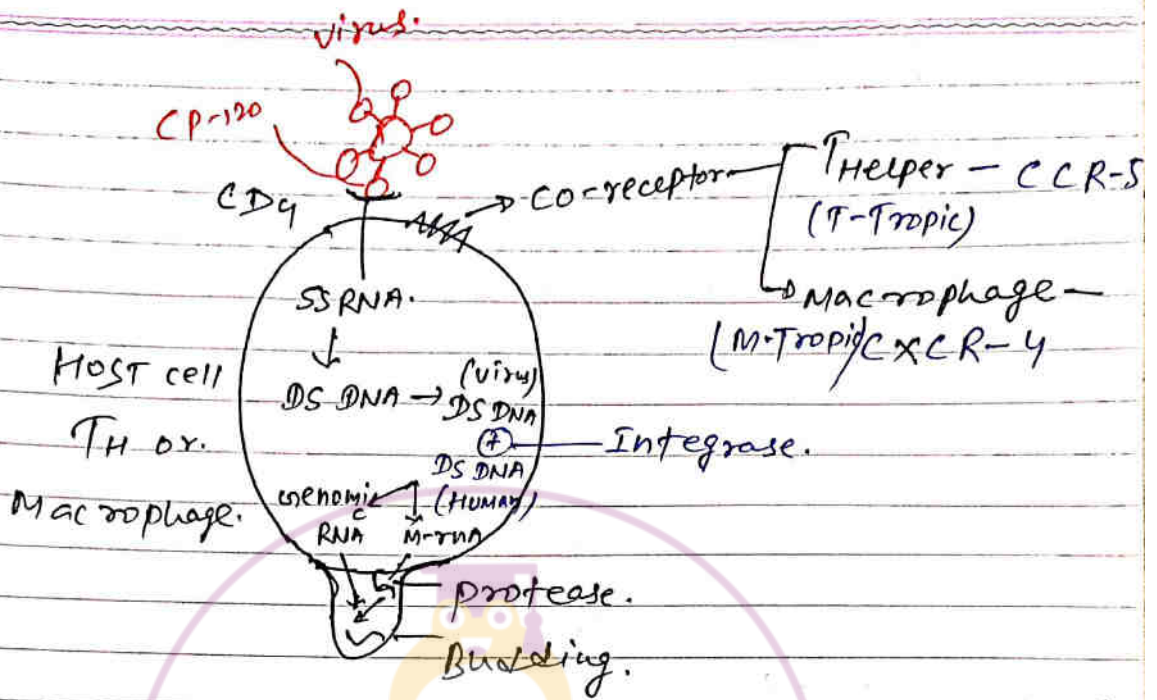 virus.
CP-120
CD4
co-receptor
THelper - CCR-5
(T-Tropic)
Macrophage -
(M-Tropic) CXCR-4
SSRNA.
HOST cell
TH or.
Macrophage.
DS DNA → (virus)
DS DNA
+
Integrase.
DS DNA
(HUMAN)
Genomic
RNA
M-rnA
protease.
Budding.